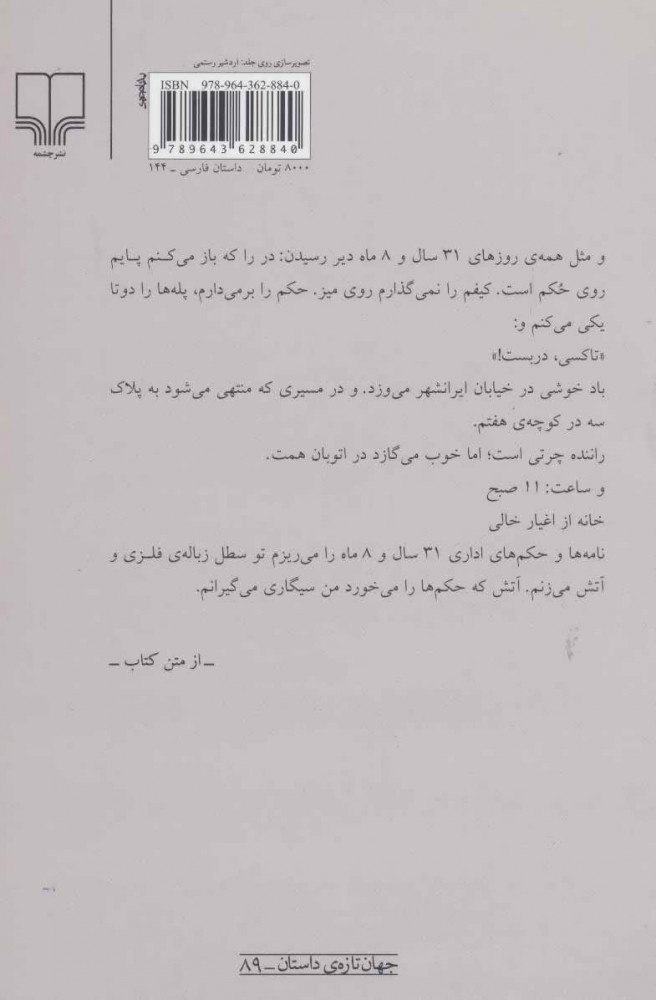 تصویرسازی روی جلد: اردشیر رستمی
ISBN 978-964-362-884-0
9 789643 628840
۸۰۰۰ تومان داستان فارسی ـ ۱۴۴
نشرچشمه
و مثل همه‌ی روزهای ۳۱ سال و ۸ ماه دیر رسیدن: در را که باز می‌کنم پایم
روی حُکم است. کیفم را نمی‌گذارم روی میز. حکم را برمی‌دارم، پله‌ها را دوتا
یکی می‌کنم و:
«تاکسی، دربست!»
باد خوشی در خیابان ایرانشهر می‌وزد. و در مسیری که منتهی می‌شود به پلاک
سه در کوچه‌ی هفتم.
راننده چرتی است؛ اما خوب می‌گازد در اتوبان همت.
و ساعت: ۱۱ صبح
خانه از اغیار خالی
نامه‌ها و حکم‌های اداری ۳۱ سال و ۸ ماه را می‌ریزم تو سطل زباله‌ی فلزی و
آتش می‌زنم. آتش که حکم‌ها را می‌خورد من سیگاری می‌گیرانم.
ـ از متن کتاب ـ
جهان تازه‌ی داستان ـ ۸۹